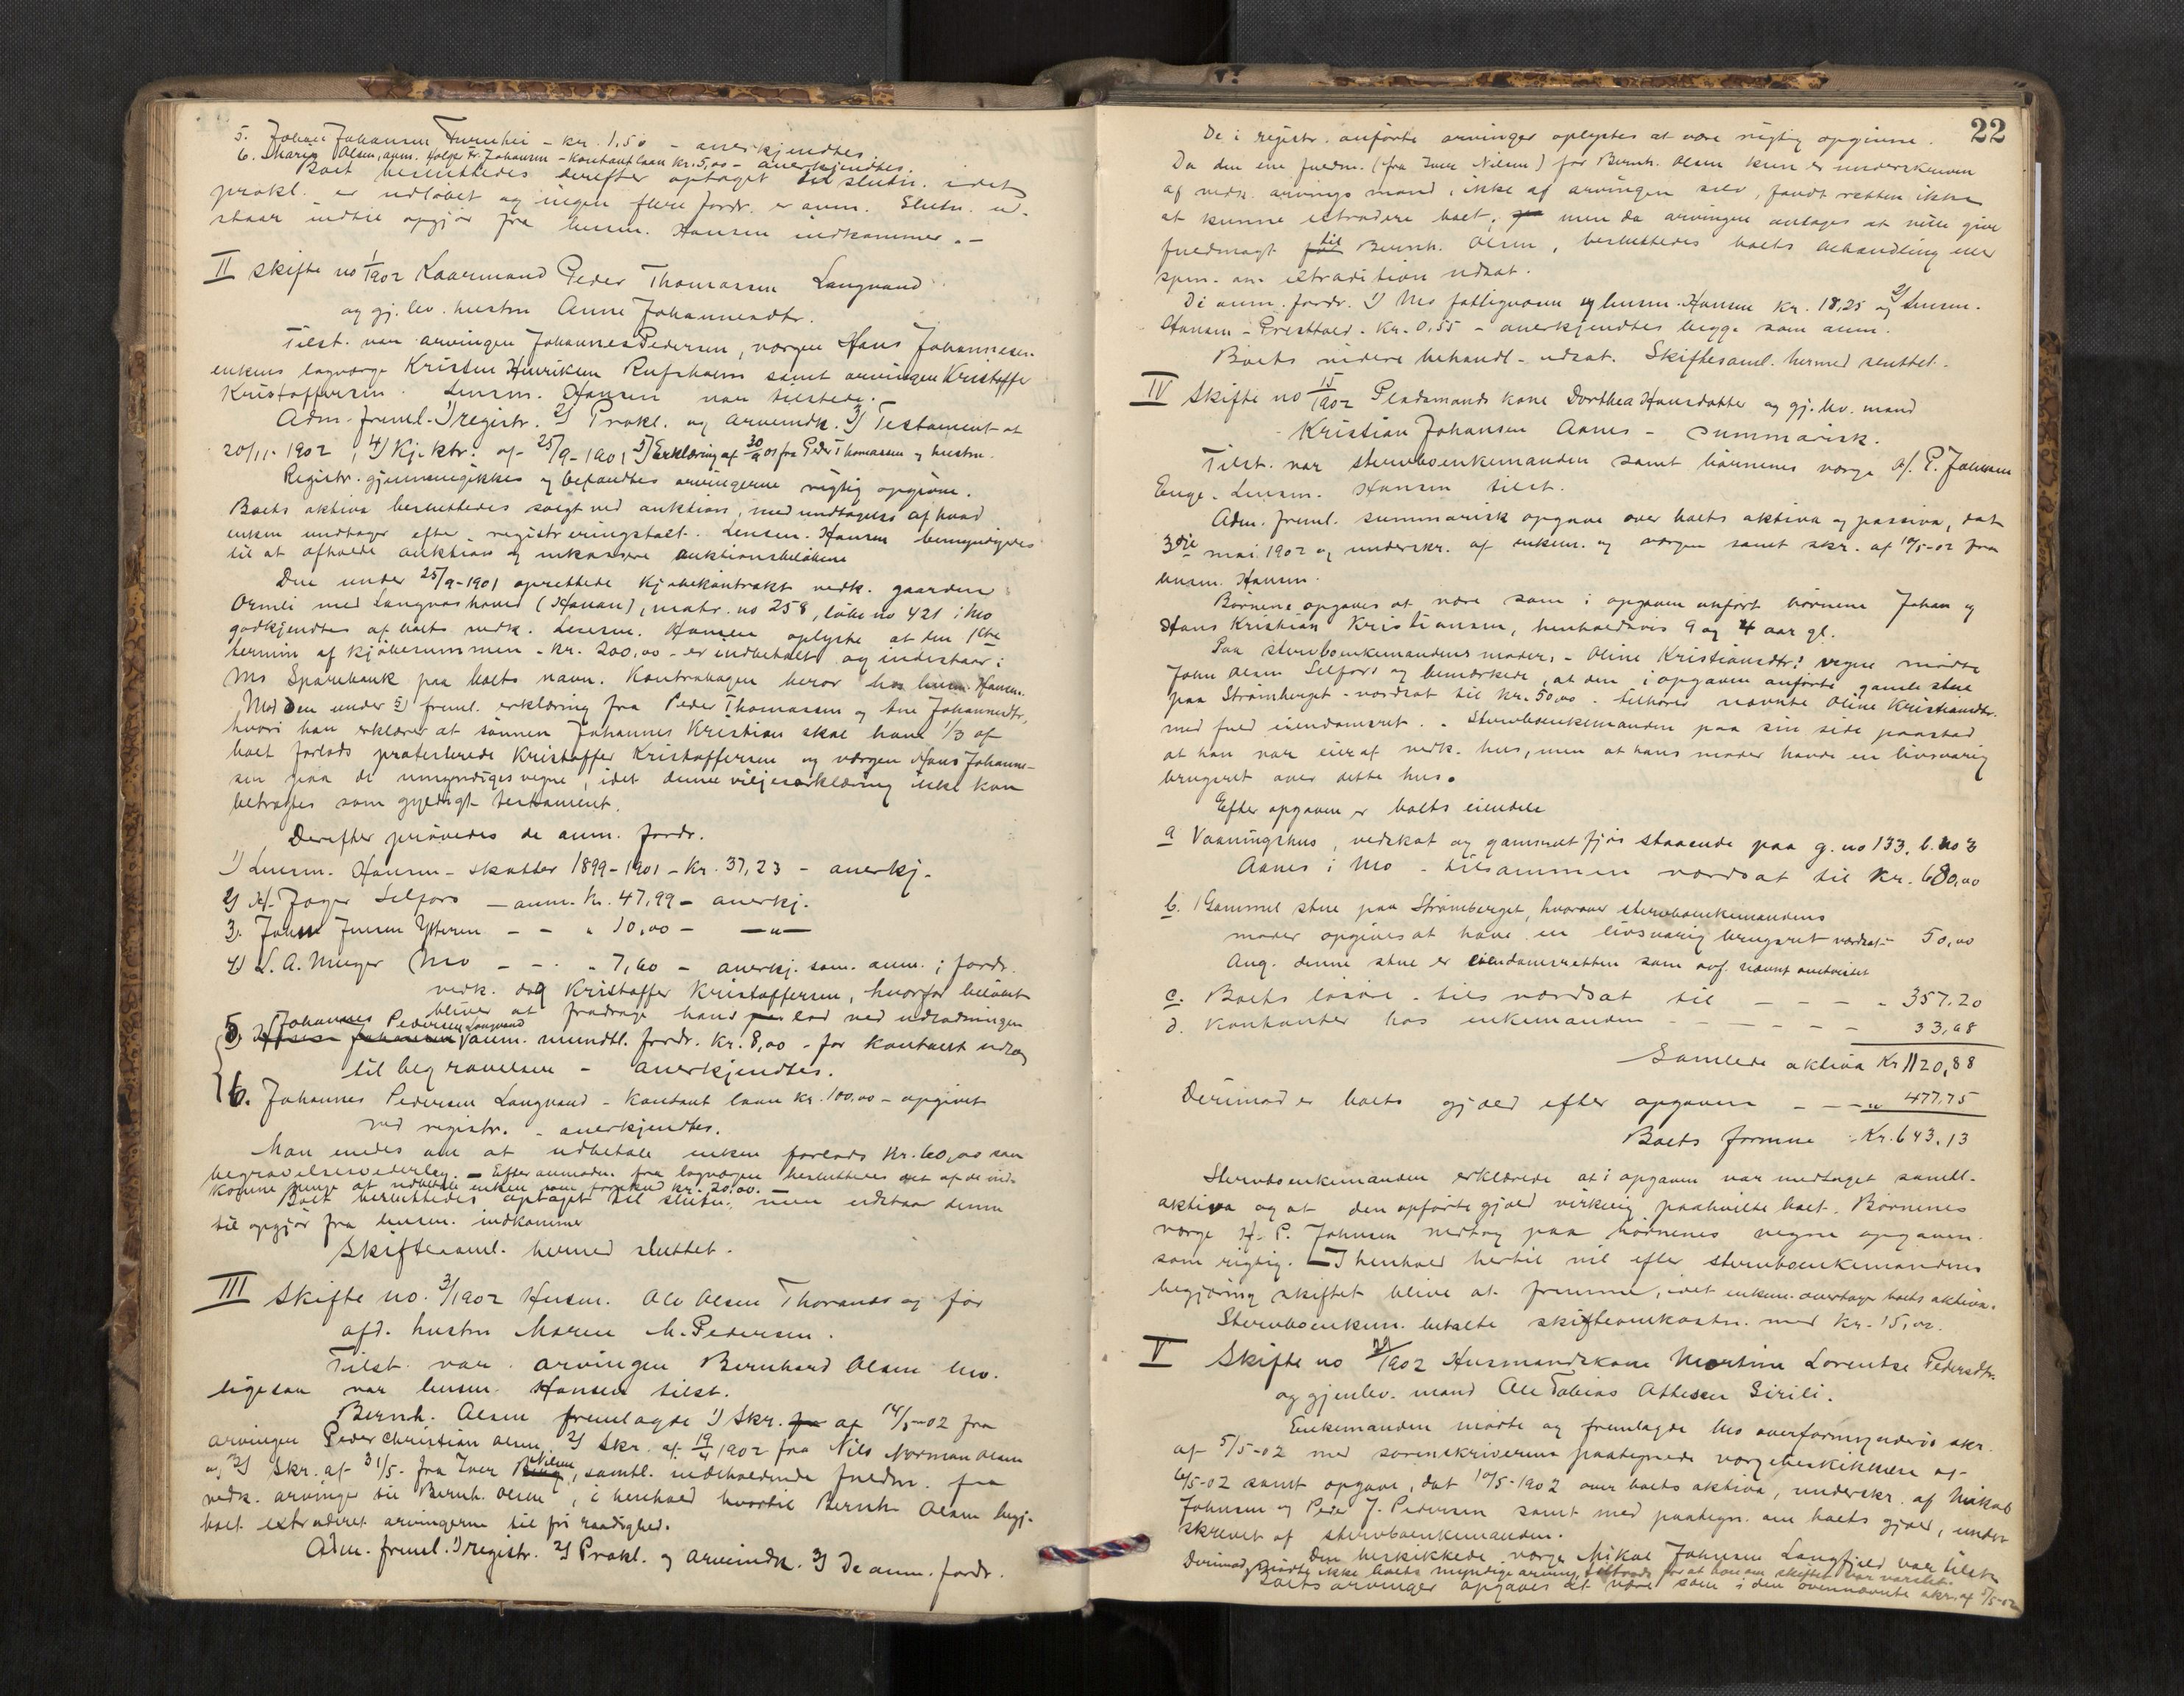 5. Johan Johansen Furuhei - kr. 1,50 - anerkjendtes
6. Maria Olsen, anm. Holger Fr. Johansen - Kontantlaan kr. 5,00 - anerkjendtes.
Boet besluttedes derefter optaget til slutn. idet
prokl. er udløbet og ingen flere fordr. er anm. Slutn. ud-
staar indtil opgjør fra lensm. Hansen indkommer. -
II Skifte no 1/1902 Kaarmand Peder Thomassen Langvand
og gj. lev. hustru Anne Johannesdtr.
Tilst. var arvingen Johannes Pedersen, værgen Hans Johannesen
enkens lagværge Kristen Henriksen Rufsholm samt arvingen Kristoffer
Kristoffersen. Lensm. Hansen var tilstede.
Adm. freml. 1) registr. 2) Prokl. og arveindk. 3) Testament af
20/11-1902, 4) Kj. ktr. af 25/9-1901 5) Erklæring af 30/9 01 fra Peder Thomassen og hustru.
Registr. gjennemgikkes og befandtes arvingerne rigtig opgivne.
Boets aktiva besluttedes solgt ved auktion, med undtagelse af hvad
enken undtager efter registreringstakt. Lensm. Hansen bemyndigedes
til at afholde auktion og inkassere auktionsbeløbene
Den under 25/9-1901 oprettede Kjøbekontrakt vedk. gaarden
Ormli med Langnoshaved (Hauan), matr. no 258, løbe no 421 i Mo
godkjendtes af boets vedk. Lensm. Hansen oplyste at den 1ste
termin af kjøbesummen - kr. 200,00 - er indbetalt og indestaar i
Mo Sparebank paa boets navn. Kontrabogen beror hos lensm. Hansen.
Mod den under 5) freml. erklæring fra Peder Thomassen og Ane Johannesdtr,
hvori han erklærer at sønnen Johannes Kristian skal have 1/3 af
boet forlods protesterede Kristoffer Kristoffersen og værgen Hans Johanne-
sen paa de umyndiges vegne, idet denne viljeserklæring ikke kan
betragtes som gyldigt testament.
Derefter prøvedes de anm. fordr.
1) Lensm. Hansen - skatter 1899-1901 - Kr. 37,23 - anerkj.
2) H. Jager Selfors - anm. kr. 47,99 - anerkj.
3. Johan Jensen Ytteren - - " 10,00 - - " -
4) L. A. Meyer Mo - - . " 7,60 - anerkj. som. anm. i fordr.
vedk. dog Kristoffer Kristoffersen, hvorfor beløbet
bliver at fradrage hans lod ved udlodningen
5. Johannes Pedersen Langvand anm. mundtl. fordr. kr. 8,00 - for kontant udlæg
til begravelsen - anerkjendtes.
6. Johannes Pedersen Langvand - Kontant laan kr. 100,00 - opgivet
ved registr. - anerkjendtes.
Man enedes om at udbetale enken forlods kr. 60,00 som
begravelsesvederlag. - Efter anmodn. fra lagværgen besluttedes det af de ind-
komne penge at udbetale enken som forskud kr. 20,00.
Boet besluttedes optaget til slutn., men udstaar denne
til opgjør fra lensm. indkommer
Skiftesaml. hermed sluttet.
III Skifte no. 3/1902 Husm. Ole Olsen Thoraness og før
afd. hustru Maren M. Pedersen.
Tilst. var. arvingen Bernhard Olsen Mo.
ligesaa var lensm. Hansen tilst.
Bernh. Olsen fremlagde 1) Skr. af 14/5-02 fra
arvingen Peder Christian Olsen. 2) Skr. af 19/4 1902 fra Nils Norman Olsen
og 3) Skr. af 31/5. fra Iver Nilsen, samtl. indeholdende fuldm. fra
vedk. arvinger til Bernh. Olsen, i henhold hvortil Bernh. Olsen begj.
boet extraderet arvingerne til fri raadighed.
Adm. freml. 1) registr. 2) Prokl. og arveindk. 3) De anm. fordr.
22
De i registr. anførte arvinger oplystes at være rigtig opgivne.
Da den ene fuldm. (fra Iver Nilsen) for Bernh. Olsen kun er underskreven
af vedk. arvings mand, ikke af arvingen selv, fandt retten ikke
at kunne extradere boet, men da arvingen antages at ville give
fuldmagt til Bernh. Olsen, besluttedes boets behandling eller
spm. om extradition udsat.
De anm. fordr. 1) Mo fattigvæsen og lensm. Hansen kr. 18,25 og 2) lensm.
Hansen - Presttold. kr. 0,55 - anerkjendtes begge som anm.
Boets videre behandl. udsat. Skiftesaml. hermed sluttet.
IV Skifte no 15/1902 Pladsmands kone Dorthea Hansdatter og gj. lev. mand
Kristian Johansen Aanes - summarisk.
Tilst. var stervboenkemanden samt børnenes værge H. P. Johnsen
Enge. Lensm. Hansen tilst.
Adm. freml. summarisk opgave over boets aktiva og passiva, dat
3dje mai 1902 og underskr. af enkem. og værgen samt skr. af 10/5-02 fra
lensm. Hansen.
Børnene opgaves at være som i opgaven anført børnene Johan og
Hans Kristian Kristiansen, henholdsvis 9 og 4 aar gl.
Paa stervboenkemandens moders - Oline Kristiansdtr's vegne mødte
John Olsen Selfors og bemærkede, at den i opgaven anførte gamle stue
paa Strømberget - værdsat til kr. 50,00 - tilhører nævnte Oline Kristiansdtr.
med fuld eiendomsret. - Stervboenkemanden paa sin side paastod
at han var eier af vedk. hus, men at hans moder havde en livsvarig
brugsret over dette hus.
Efter opgaven er boets eiendele
a Vaaningshus, vedskot og gammelt fjøs staaende paa g. no 133, b. no 3
Aanes i Mo - tilsammen værdsat til kr. 680,00
b. 1 Gammel stue paa Strømberget, hvorover stervboenkemandens
moder opgives at have en livsvarig brugsret værdsat - 50,00
Ang. denne stue er eiendomsretten som ovf. nævnt omtvistet
c. Boets løsøre - tils værdsat til - - - - 357.20
d. Kontanter hos enkemanden - - - - - - 33,68
Samlede aktiva Kr 1120,88
Derimod er boets gjæld efter opgaven - - - " 477.75
Boets formue Kr. 643.13
Stervboenkemanden erklærede at i opgaven var medtaget samtl.
aktiva og at den opførte gjæld virkelig paahvilte boet. Børnenes
værge H. P. Johnsen vedtog paa børnenes vegne opgaven
som rigtig. - I henhold hertil vil efter stervboenkemandens
begjæring skiftet blive at fremme, idet enkem. overtager boets aktiva.
Stervboenkem. betalte skifteomkostn. med kr. 15,02.
V Skifte no 29/1902 Husmandskone Martine Lorentse Pedersdtr.
og gjenlev. mand Ole Tobias Attesen Girili.
Enkemanden mødte og fremlagde Mo overformynderis skr.
af 5/5-02 med sorenskriverens paategnede værgebeskikkelse af
6/5-02 samt opgave, dat 10/5-1902 over boets aktiva, underskr. af Mikal
Johnsen og Peder J. Pedersen samt med paategn. om boets gjæld, under-
skrevet af stervboenkemanden.
Den beskikkede værge Mikal Johnsen Langfjeld var tilst.
Derimod mødte ikke boets myndige arving, tiltrods for at han om skiftet var varslet.
Boets arvinger opgaves at være som i den ovennævnte skr. af 5/5-02